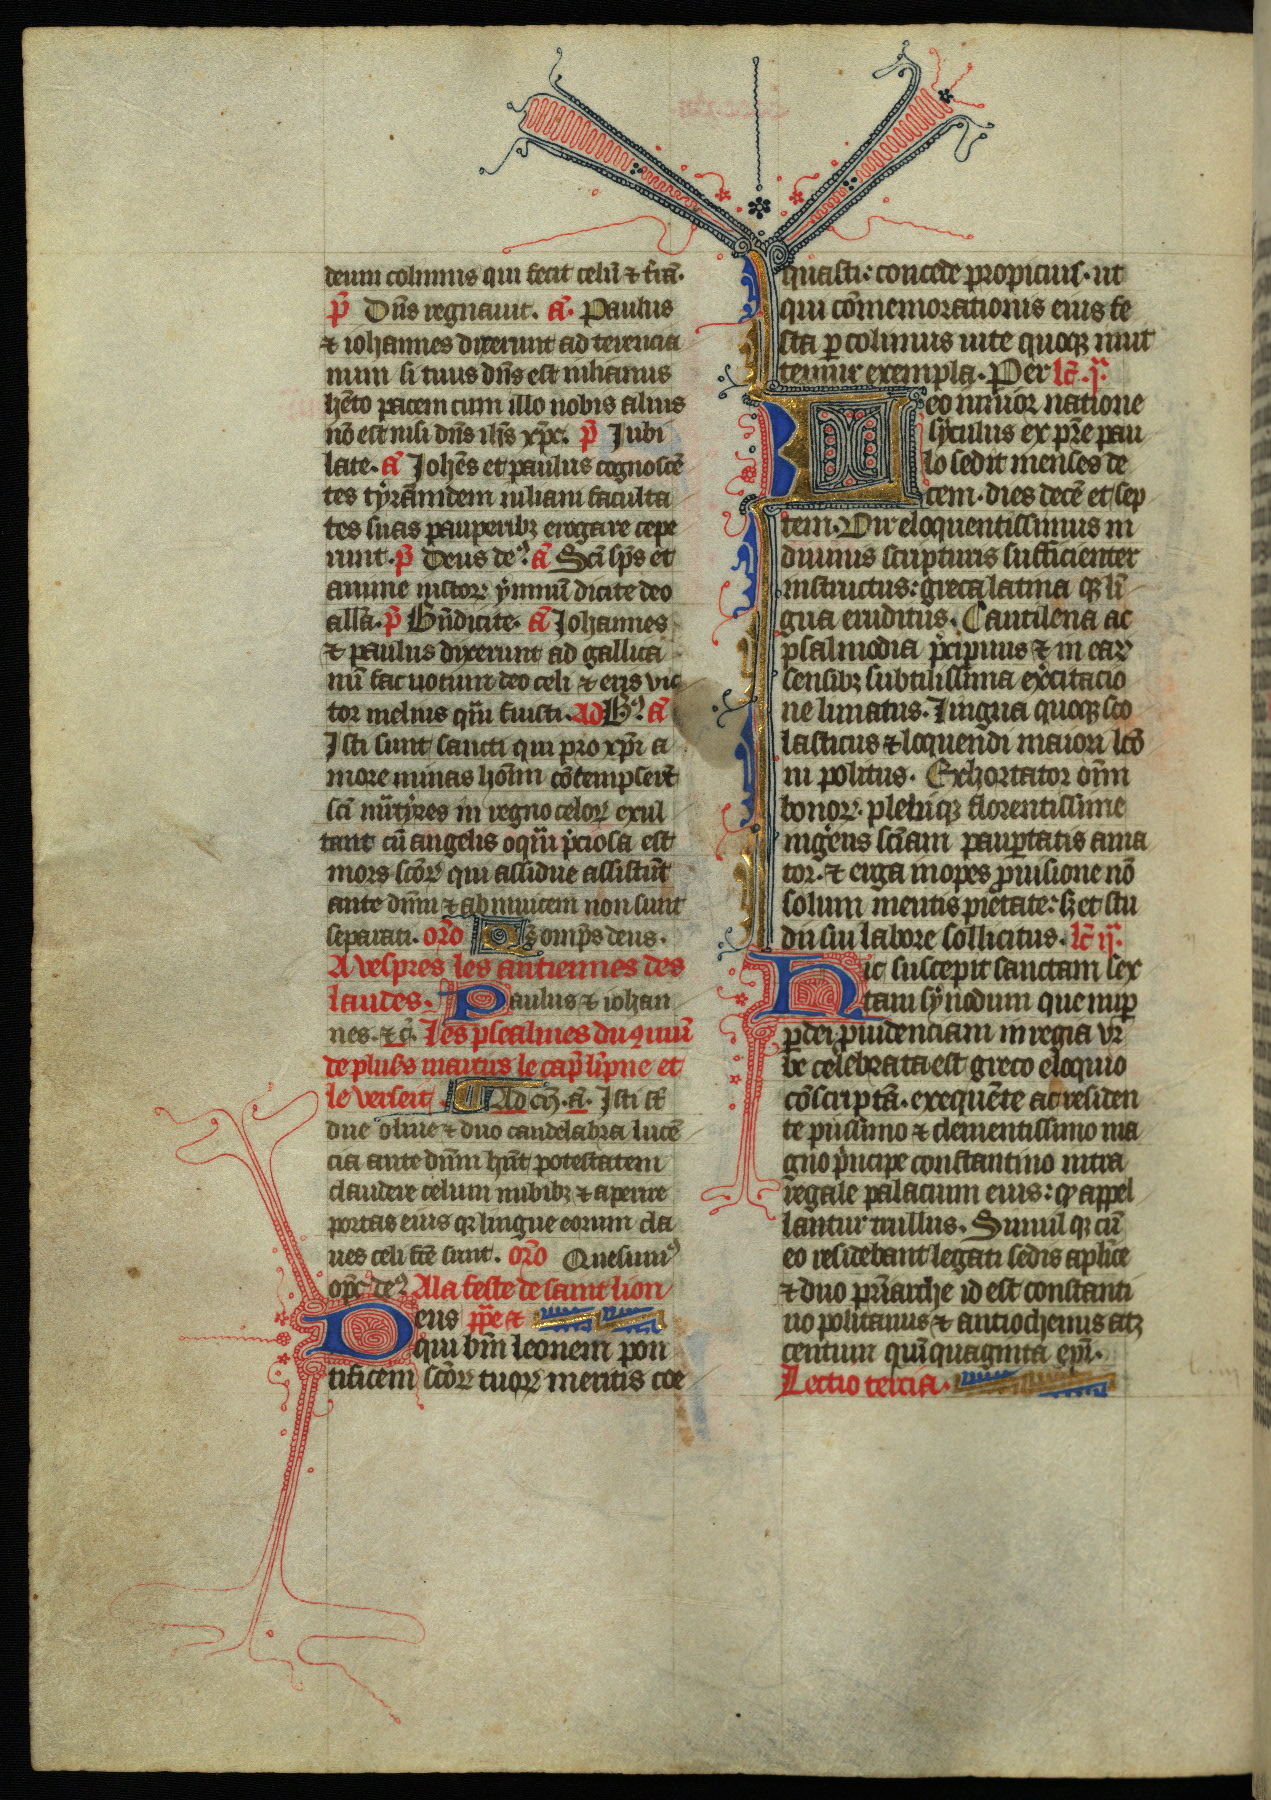 deum colimus qui fecit celū ⁊ t̄rā.
p̄ Dn̄s regnauit. a᷑. Paulus
⁊ iohannes dixerunt ad terencia
num si tuus dn̄s est iulianus
h̄eto pacem cum illo nobis alius
nō est nisi dn̄s ih̄s xp̄c. p̄ Jubi
late. a᷑ Joh̄es et paulus cognoscē
tes tyrānidem iuliani faculta
tes suas pauperibꝫ erogare cepe
runt. p̄ Deus deꝰ a᷑ Sc̄i sp̄s et
anime iustoꝝ ymnū dicite deo
all̄a. p̄ Bn̄dicite. a᷑ Johannes
⁊ paulus dixerunt ad gallica
nū fac uotum deo celi ⁊ eris vic
tor melius qm̄ fuisti. ad Bꝰ a᷑
Isti sunt sancti qui pro xp̄i a
more minas hoīm cōtempserūt
sc̄i mr̄tyres in regno celoꝝ exul
tant cū angelis o qm̄ p̄ciosa est
mors sc̄oꝝ qui assidue assistūt
ante dn̄m ⁊ ab inuicem non sunt
separati. or̄o Qs omp̄s deus.
A vespres les antiennes des
laudes. Paulus ⁊ iohan
nes. ⁊ c̄. Les psealmes du qmū
de plusrs martirs le cap̄ l'ipne et
le verseit. Ad cō. a᷑. Isti st̄
due oliue ⁊ duo candelabra lucē
cia ante dn̄m hn̄t potestatem
claudere celum nubibꝫ ⁊ aperire
portas eius qr lingue eorum cla
ues celi fc̄e sunt. or̄o Quesumꝰ
op̄c deꝰ A la feste de saint lion
Deus pp̄e ⁊
qui bm̄ leonem pon
tificem sc̄oꝝ tuoꝝ meritis coe
quasti: concede propicius. ut
qui cōmemorationis eius fe
sta ꝑcolimus uite quoqꝫ imit
temur exempla. Per lc̄. j᷑.
Leo iunior natione
syculus ex pr̄e pau
lo sedit menses de
cem. dies decē et sep
tem. Vir eloquentissimus in
diuinis scripturis sufficienter
instructus: greca latina qꝫ lī
gua eruditus. Cantilena ac
psalmodia p̄cipuus ⁊ in eaꝝ
sensibꝫ subtilissima exercitacio
ne limatus. Lingua quoqꝫ sco
lasticus ⁊ loquendi maiori lc̄o
ni politus. Exhortator om̄m
bonoꝝ. plebiqꝫ florentissime
ingerens sciam paupertatis ama
tor. ⁊ erga inopes ꝓuisione nō
solum mentis pietate: sꝫ et stu
dii sui labore sollicitus. lc̄ ij᷑.
Hic suscepit sanctam sex
tam synodum que nup
ꝑ dei ꝓuidenciam in regia vr
be celebrata est greco eloquio
cōscripta. exequēte ac residen
te piissimo ⁊ clementissimo ma
gno p̄ncipe constantino intra
regale palacium eius: qꝫ appel
lantur trullus. Simul qꝫ cū
eo residebant legati sedis apl̄ice
⁊ duo pr̄iarche id est constanti
no politanus ⁊ antiochenus atqꝫ
centum quīquaginta epī.
Lectio tercia.